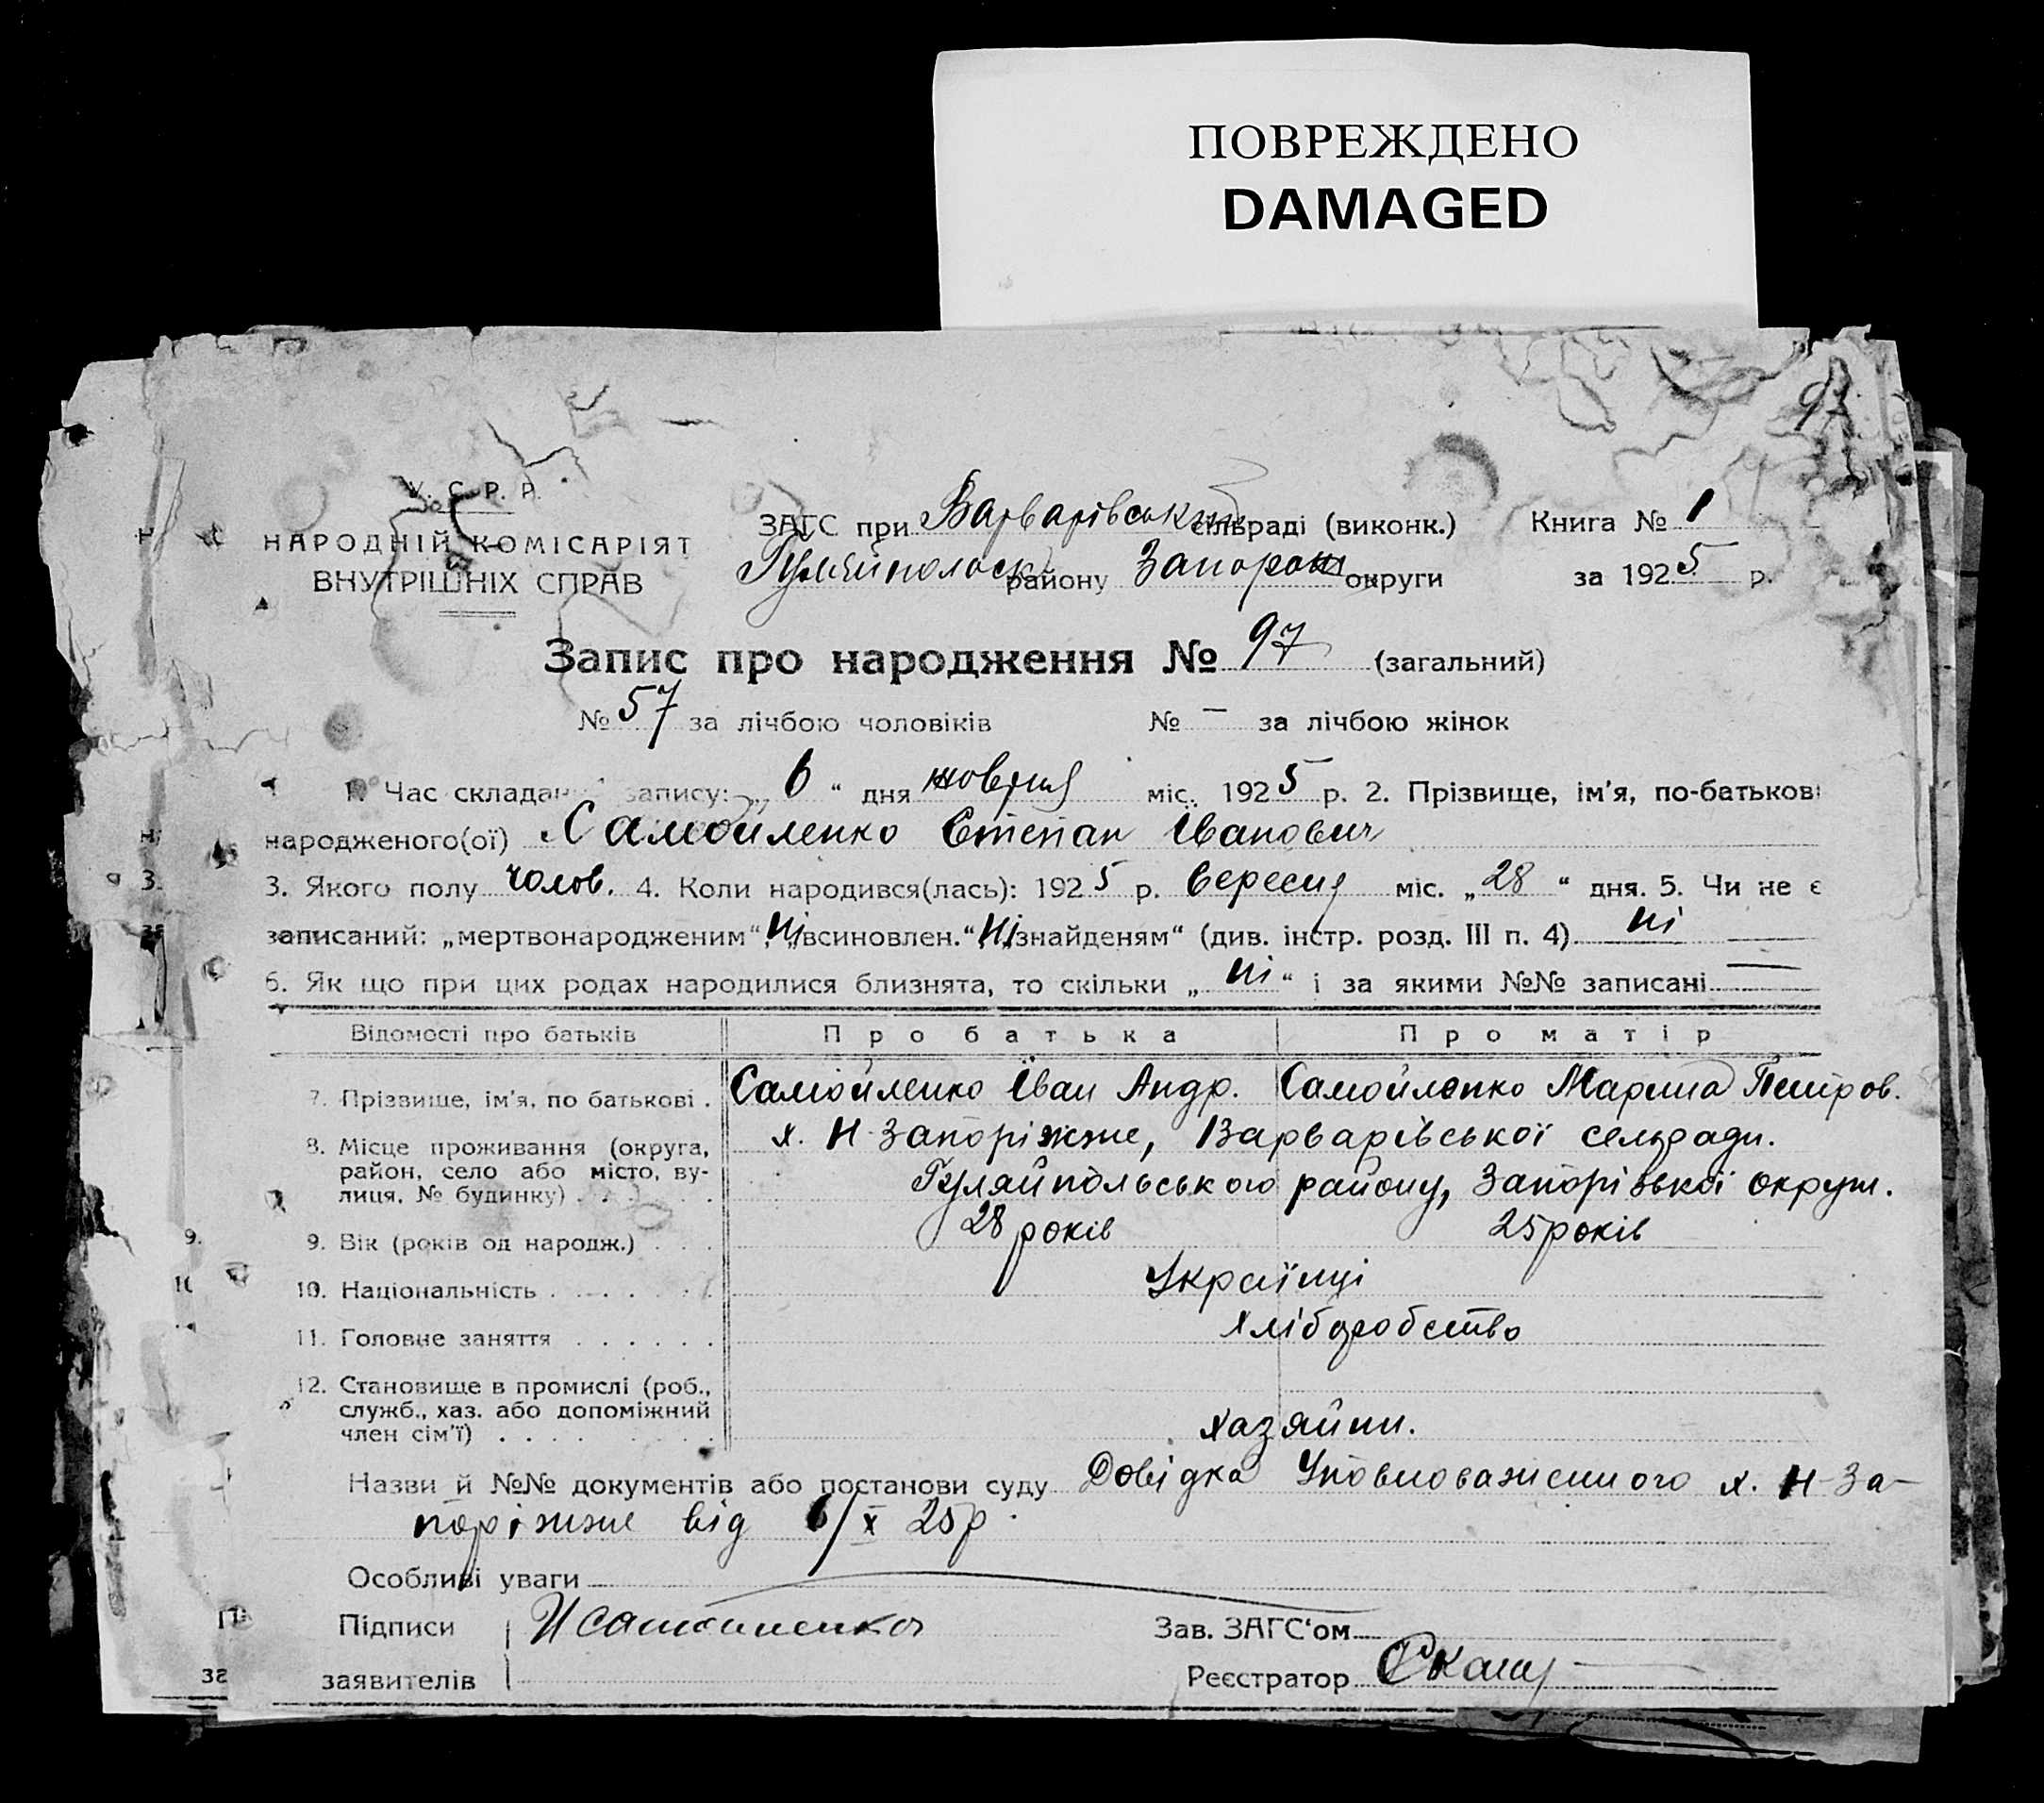 ПОВРЕЖДЕНО
DAMAGED
97
У. С. Р. Р.
НАРОДНІЙ КОМІСАРІЯТ
ВНУТРІШНІХ СПРАВ
ЗАГС при Варварівський сільраді (виконк.) Книга № 1
району Запорож округи за 1925 р.
Запис про народження № 97 (загальний)
№ 57 за лічбою чоловіків № — за лічбою жінок
1. Час складан запису: „ 6 “ дня жовтня міс. 1925 р. 2. Прізвище, ім'я, по-батькові
народженого(ої) Самойленко Степан Іванович
3. Якого полу чолов. 4. Коли народився(лась): 1925 р. вересня міс. „28“ дня. 5. Чи не є
записаний: „мертвонародженим“, ні „всиновлен.“ ні „знайденям“ (див. інстр. розд. III п. 4) ні —
6. Як що при цих родах народилися близнята, то скільки „ ні “ і за якими №№ записані —
Відомості про батьків Про батька Про матір
7. Прізвище, ім'я, по батькові . Самойленко Іван Андр. Самойленко Марина Петров.
8. Місце проживання (округа, х. Н-Запоріжже, Варварівської сельради.
район, село або місто, ву-
лиця, № будинку) . . . Гуляйпольського району, Запорізької округи.
9. Вік (років од народж.) . . . 28 років 25 років
10. Національність . . . . . . Українці
11. Головне заняття . . . . . . хліборобство
12. Становище в промислі (роб.,
служб., хаз. або допоміжний
член сім'ї) . . . . хазяйни.
Назви й №№ документів або постанови суду Довідка Уповноваженного х. Н-За-
поріжже від 6/X 25р.
Особливі уваги
Підписи Зав. ЗАГС'ом
заявителів Реєстратор